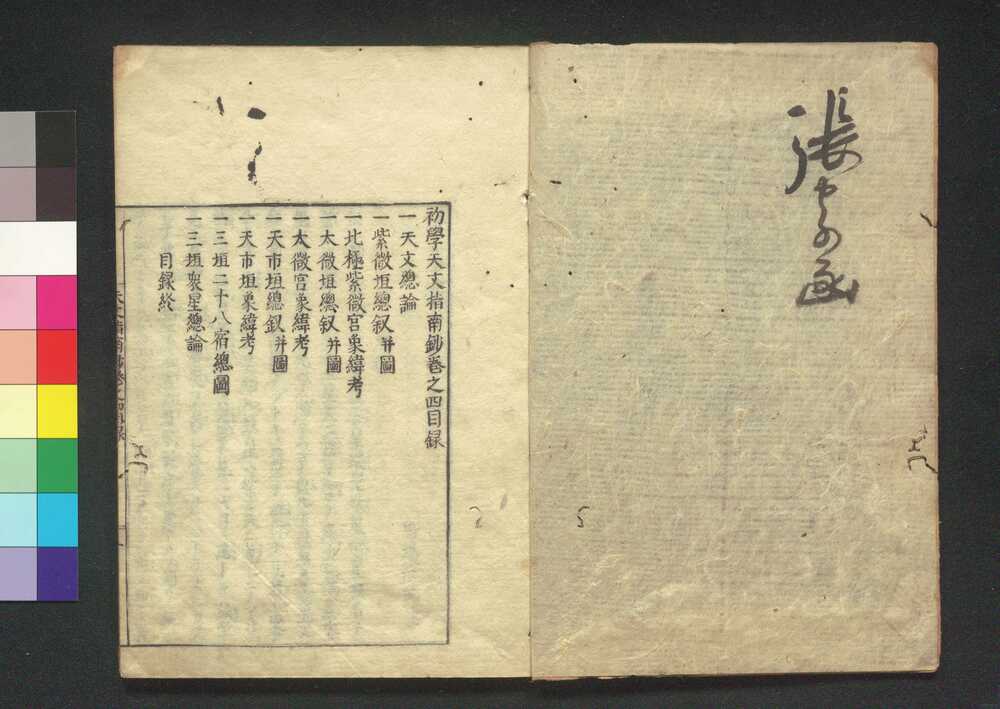 初學天文指南鈔巻之四目録
一天文總論
一紫微垣總叙并圖
一北極紫微宮象緯考
一太微垣總叙并圖
一太微宮象緯考
一天市垣總叙并圖
一天市垣象緯考
一三垣二十八宿總圖
一三垣衆星總論
目録終